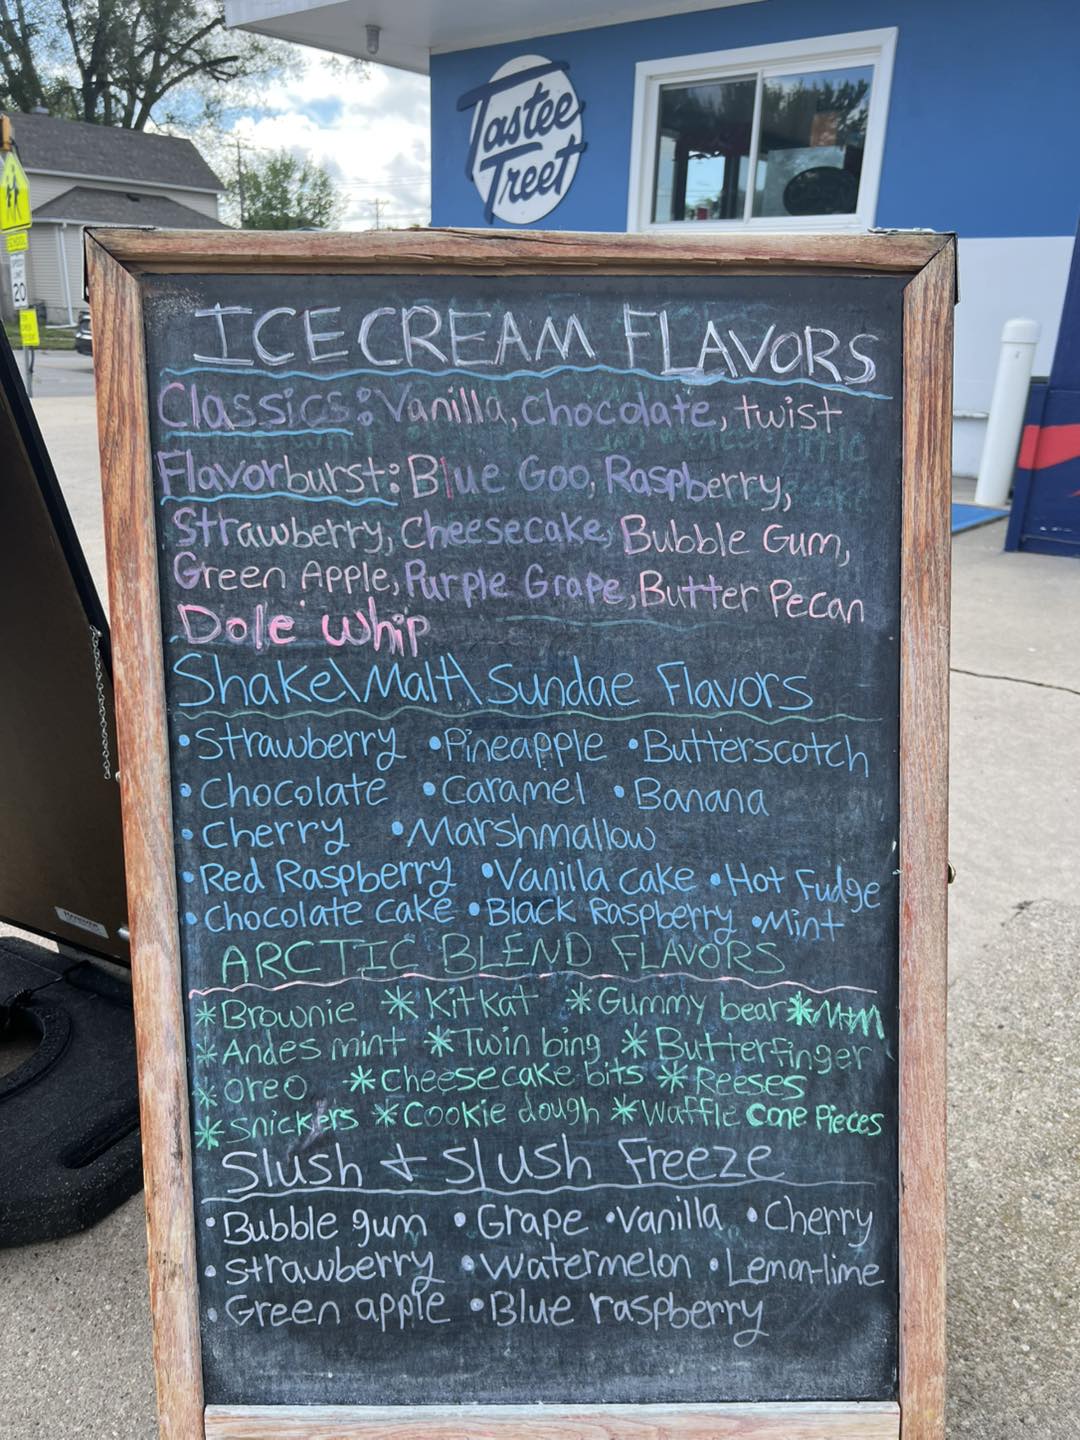 Tastee
Treet
SCHOOL
20
ICE CREAM FLAVORS
Classics: Vanilla, Chocolate, twist
Flavorburst: Blue Goo, Raspberry,
Strawberry, Cheesecake, Bubble Gum,
Green Apple, Purple Grape, Butter Pecan
Dole Whip
Shake\Malt\Sundae Flavors
•Strawberry •Pineapple •Butterscotch
•Chocolate •Caramel •Banana
•Cherry •Marshmallow
•Red Raspberry •Vanilla cake •Hot Fudge
•Chocolate cake •Black Raspberry •Mint
ARCTIC BLEND FLAVORS
*Brownie *KitKat *Gummy bear *M+M
*Andes mint *Twin bing *Butterfinger
*oreo *Cheesecake bits *Reeses
*Snickers *Cookie dough *Waffle cone Pieces
Slush + Slush Freeze
•Bubble gum •Grape •Vanilla •Cherry
•Strawberry •Watermelon •Lemon-lime
•Green apple •Blue raspberry